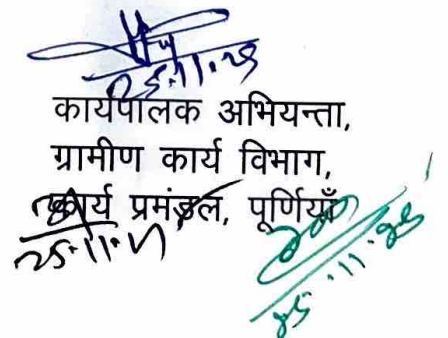 25.11.25
कार्यपालक अभियन्ता,
ग्रामीण कार्य विभाग,
कार्य प्रमंडल, पूर्णियाँ
25.11.25